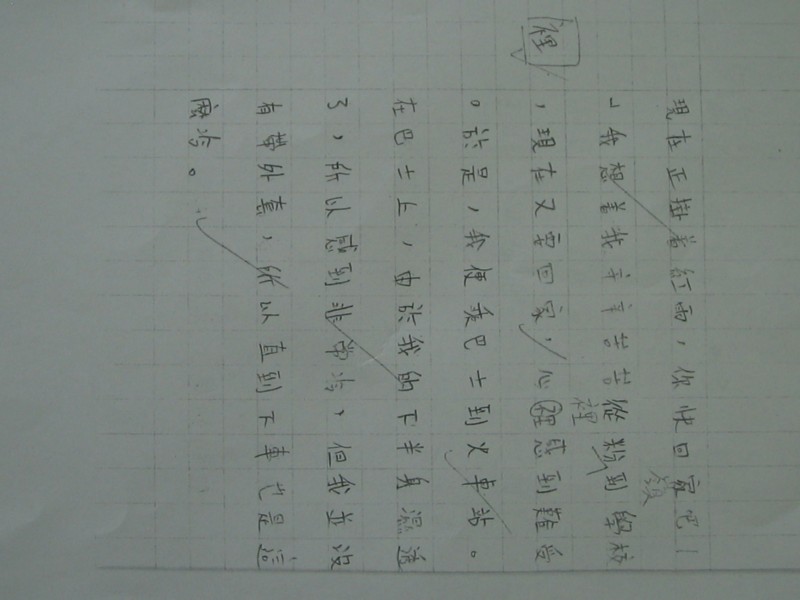 現在正掛着紅雨，你快回家吧！
」我想着我辛辛苦苦從粉到學校
裡
，現在又要回家，心裡感到難受
裡
。於是，我便乘巴士到火車站。
在巴士上，由於我的下半身濕透
了，所以感到非常冷，但我並沒
有帶外套，所以直到下車也是這
麼冷。